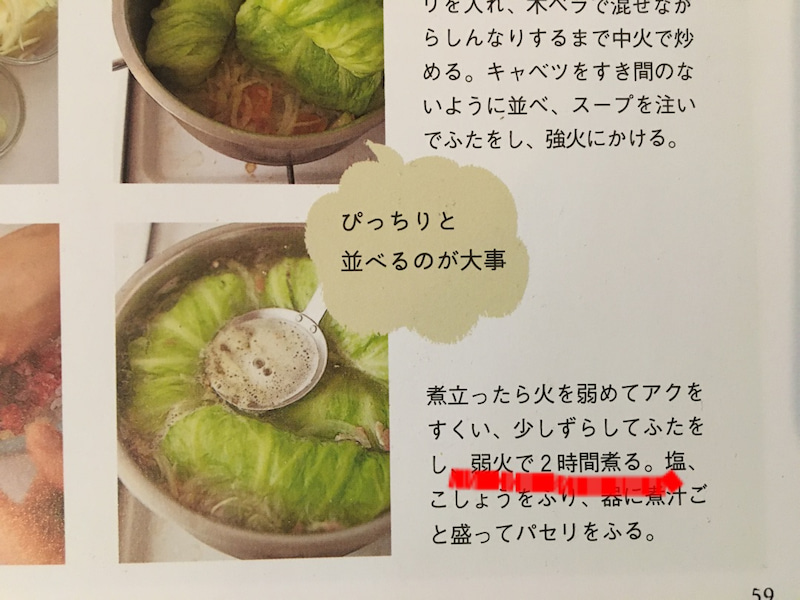 りを入れ、木べラで混ぜなが
らしんなりするまで中火で炒
める。キャベツをすき間のな
いように並べ、スープを注い
でふたをし、強火にかける。
ぴっちりと
並べるのが大事
煮立ったら火を弱めてアクを
すくい、少しずらしてふたを
し、弱火で2時間煮る。塩、
こしょうをふり、器に煮汁ご
と盛ってパセリをふる。
59